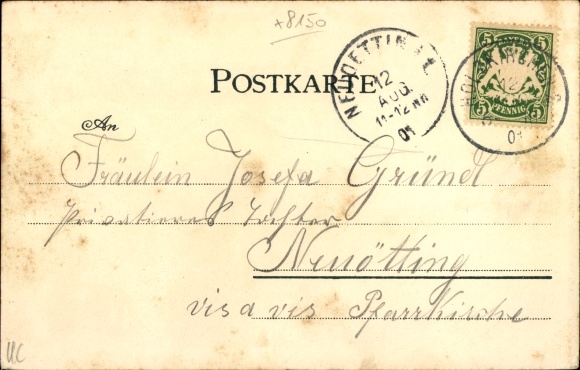 +8150
POSTKARTE
NEUOETTING
12
AUG.
11-12
01
5 5
5 PFENNIG 5
HOLZKIRCHEN
12
01
An
Fräulein Josefa Gründl
Privatiers Tochter
Neuötting
vis a vis Pfarrkirche
UC